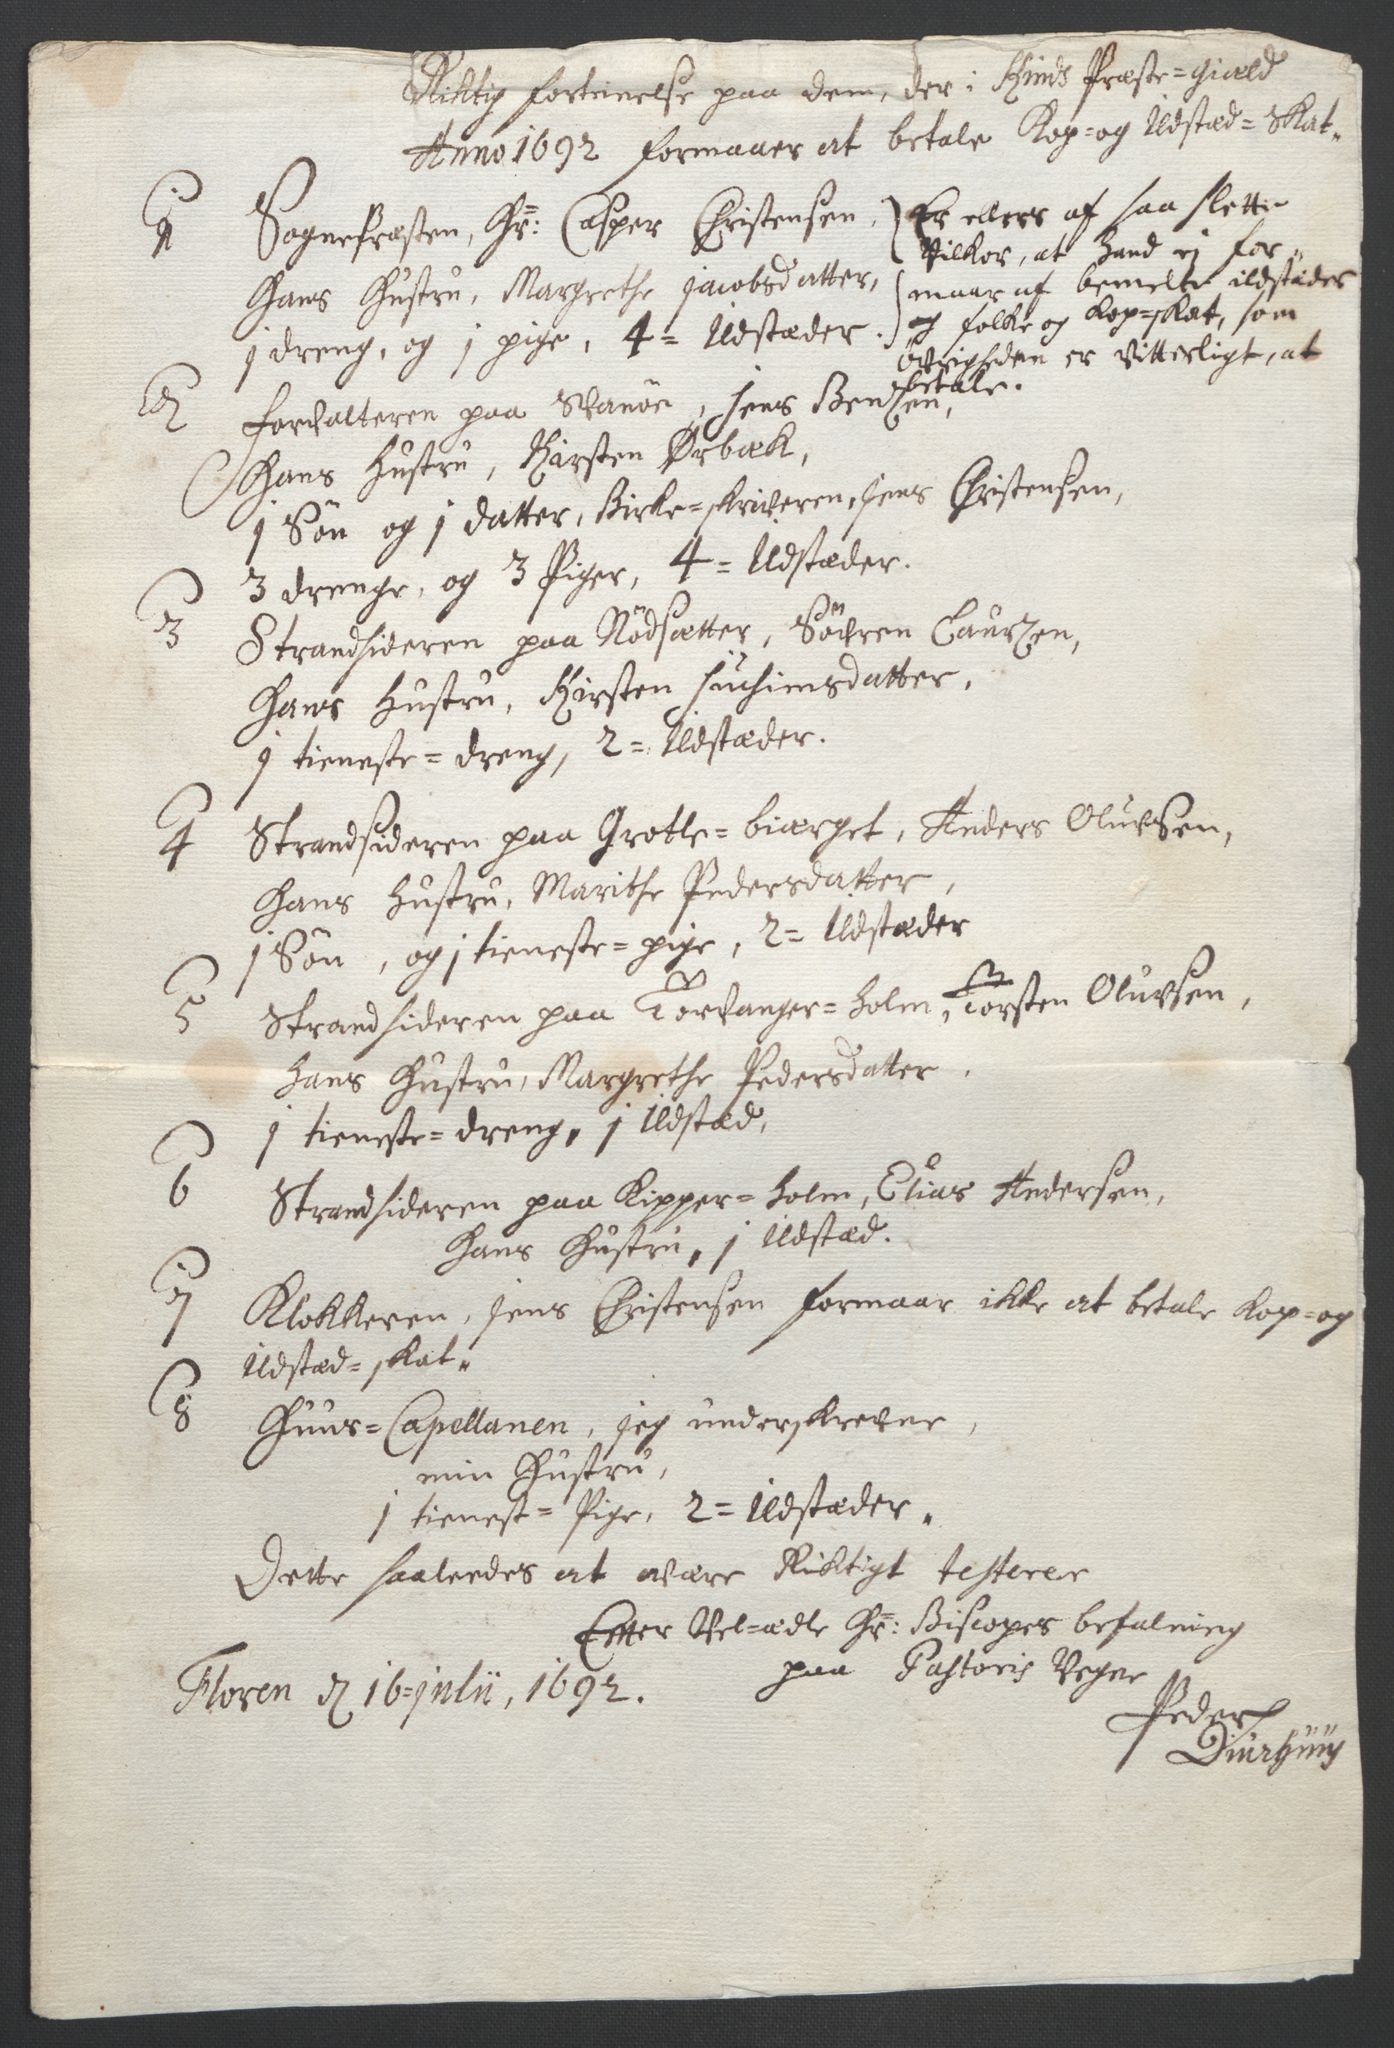 Riktig forteinelse paa dem, der i Kinds Præste=giæld
Anno 1692 formaaer at betale Kop= og Ildstæd=Skat„
1 Sognepræsten, Hr: Casper Christensen,
Hans Hustru, Margrethe Jacobsdatter,
1 dreng, og 1 pige, 4= Ildstæder.
Er ellers af saa slette
Vilkor, at Hand ej for„
maar af bemelte ildstæder
og folke og Kop=skat, som
Övrigheden er vitterligt, at
betale.
2 Forvalteren paa Svanöe, Jens Bendsen,
Hans Hustru, Kirsten Ørbæk,
1 Sön og 1 datter, Birke=skriveren, Jens Christensen,
3 drenge, og 3 Piger, 4= Ildstæder.
3 Strandsideren paa Nödsætter, Söfren Laurzen,
Hans Hustru, Kirsten Juchimsdatter,
1 tieneste=dreng, 2= Ildstæder.
4 Strandsideren paa Grotle=biærget, Anders Oluvsen,
Hans Hustru, Marithe Pedersdatter,
1 Sön, og 1 tieneste=pige, 2= Ildstæder
5 Strandsideren paa Torvanger=holm, Torsten Oluvsen,
Hans Hustru, Margrethe Pedersdatter,
1 tieneste=dreng, 1 Ildstæd,
6 Strandsideren paa Kipper=holm, Elias Andersen,
Hans Hustru, 1 Ildstæd.
7 Klokkeren, Jens Christensen formaar ikke at betale Kop= og
Ildstæd=skat„
8 Huus=Capellanen, jeg underskrevne,
min Hustru,
1 tienest=Pige, 2= Ildstæder„
Dette saaledes at være Riktigt testerer
Efter Vel=ædle Hr: Biscopes befalning
paa Pastoris Vegne
Floren d 16=julii, 1692.
Peder
Diurhuus